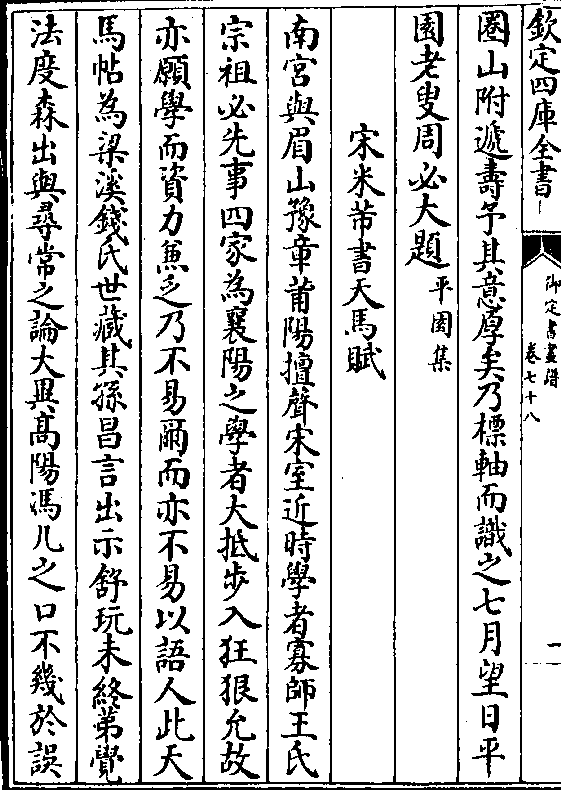 欽定四庫全書
御定書畫譜
卷七十八
圏山附遞壽予其意厚矣乃標軸而識之七月望日平
園老叟周必大題平園集
宋米芾書天馬賦
南宮與眉山豫章莆陽擅聲宋室近時學者寡師王氏
宗祖必先事四家為襄陽之學者大抵步入狂狠允故
亦願學而資力兼乏乃不易爾而亦不易以語人此天
馬帖為梁溪錢氏世藏其孫昌言出示舒玩未終第覺
法度森出與尋常之論大異髙陽馮几之口不幾於誤